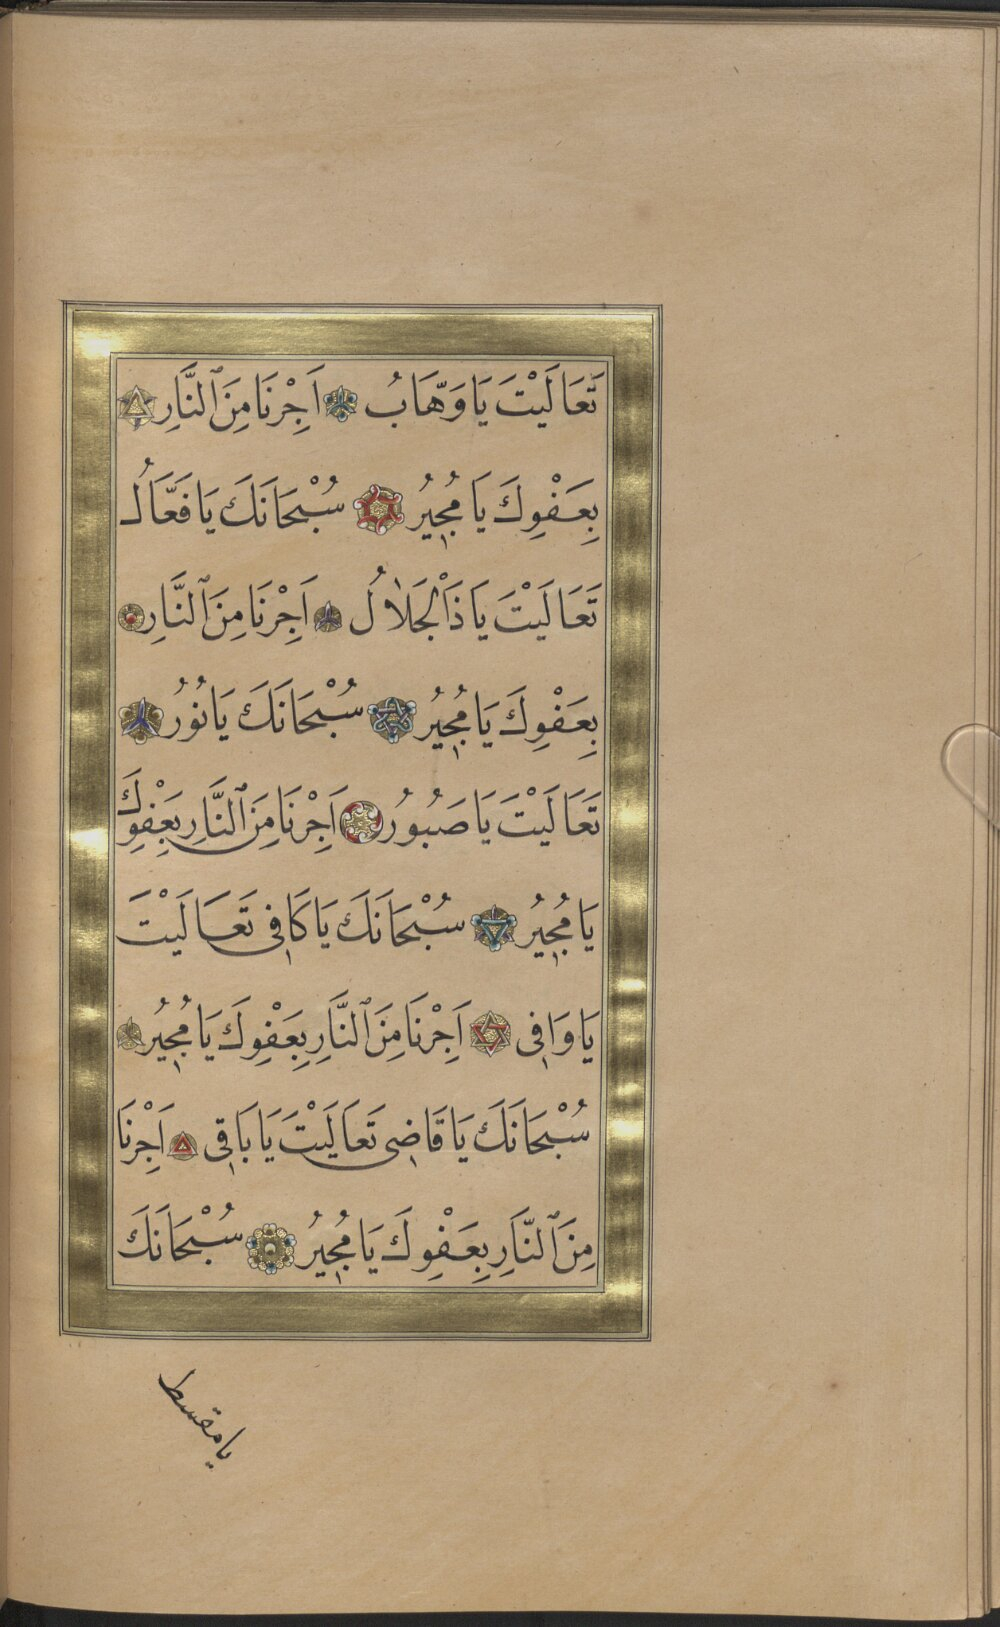 تَعَالَيْتَ يَا وَهَّابُ اَجِرْنَا مِنَ ٱلنَّارِ
بِعَفْوِكَ يَا مُجِيرُ سُبْحَانَكَ يَا فَعَّالُ
تَعَالَيْتَ يَا ذَا ٱلْجَلَالُ اَجِرْنَا مِنَ ٱلنَّارِ
بِعَفْوِكَ يَا مُجِيرُ سُبْحَانَكَ يَا نُورُ
تَعَالَيْتَ يَا صَبُورُ اَجِرْنَا مِنَ ٱلنَّارِ بِعَفْوِكَ
يَا مُجِيرُ سُبْحَانَكَ يَا كَافِى تَعَالَيْتَ
يَا وَافِى اَجِرْنَا مِنَ ٱلنَّارِ بِعَفْوِكَ يَا مُجِيرُ
سُبْحَانَكَ يَا قَاضِى تَعَالَيْتَ يَا بَاقِى اَجِرْنَا
مِنَ ٱلنَّارِ بِعَفْوِكَ يَا مُجِيرُ سُبْحَانَكَ
يا مقسط